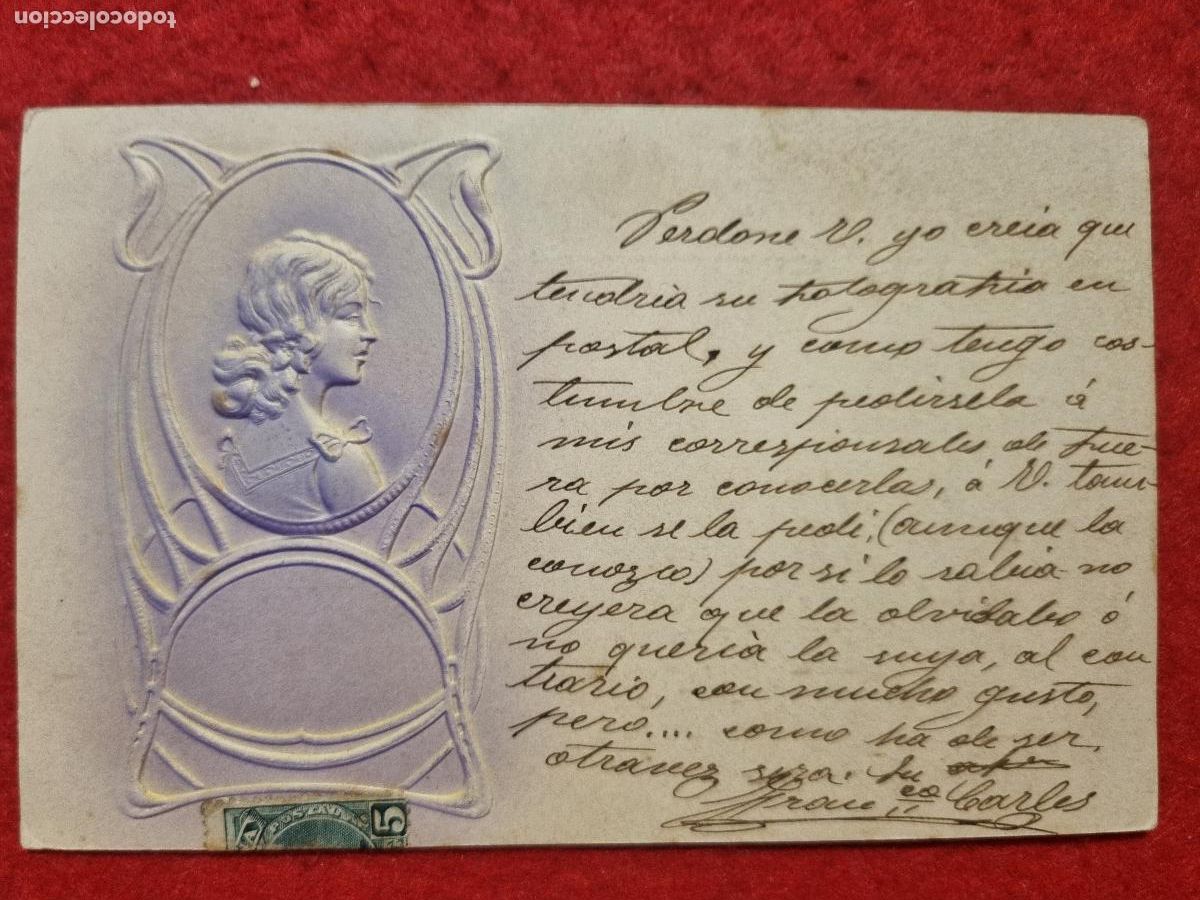 todocoleccion
Perdone V. yo creia que
tendria su fotografia en
postal, y como tengo cos-
tumbre de pedirsela á
mis corresponsales de fue-
ra por conocerlas, á V. tam-
bien se la pedi, (aunque la
conozco) por si lo sabia no
creyera que la olvidaba ó
no queria la suya, al con
trario, con mucho gusto,
pero.... como ha de ser,
otravez sera. Su
Francco Carles
5